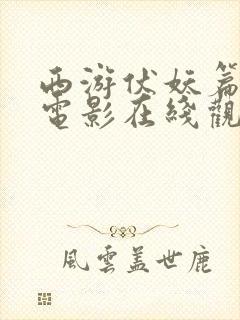 西游伏妖篇
電影在綫觀
風雲蓋世鹿